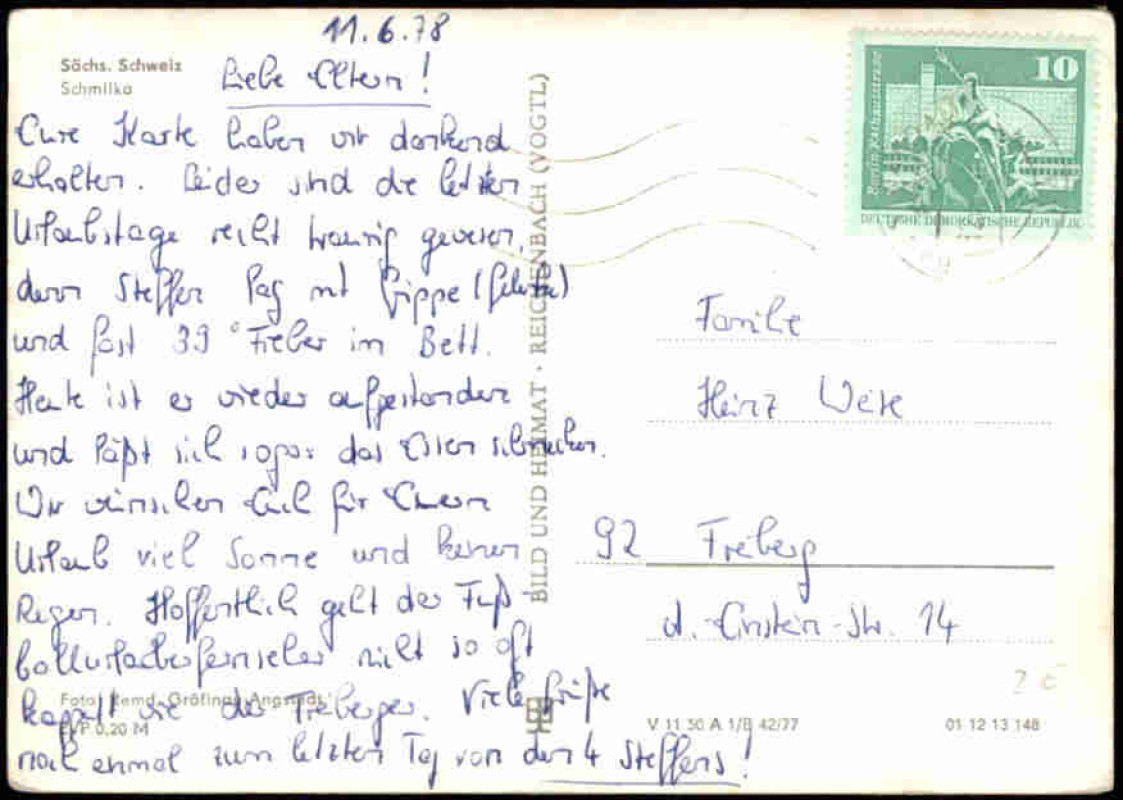 11.6.78
Sächs. Schweiz
Schmilka
Liebe Eltern!
Eure Karte haben wir dankend
erhalten. Leider sind die letzten
Urlaubstage recht traurig gewesen,
denn Steffen lag mit Grippe
und fast 39° Fieber im Bett.
Heute ist er wieder aufgestanden
und läßt sich sogar das Essen schmecken.
Wir wünschen Euch für Euern
Urlaub viel Sonne und keinen
Regen. Hoffentlich geht der Fuß
ballurlauberfernseher nicht so oft
kaputt wie der Freiberger. Viele Grüße
noch einmal zum letzten Tag von den 4 Steffens!
Foto: Remd, Gröfinau-Angstedt
EVP 0,20 M
BILD UND HEIMAT · REICHENBACH (VOGTL)
V 11 50 A 1/B 42/77
01 12 13 148
10
Berlin, Rathausstraße
DEUTSCHE DEMOKRATISCHE REPUBLIK
Familie
Heinz
92 Freiberg
A.-Einstein-Str. 14